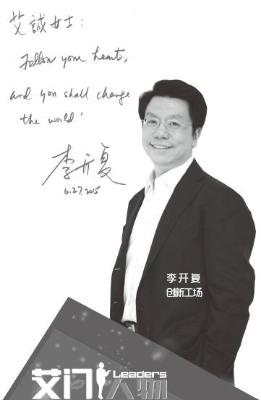 艾诚女士：
Follow your heart,
and you shall change
the world!
李开复
6.27.2015
李开复
创新工场
艾问人物
Leaders